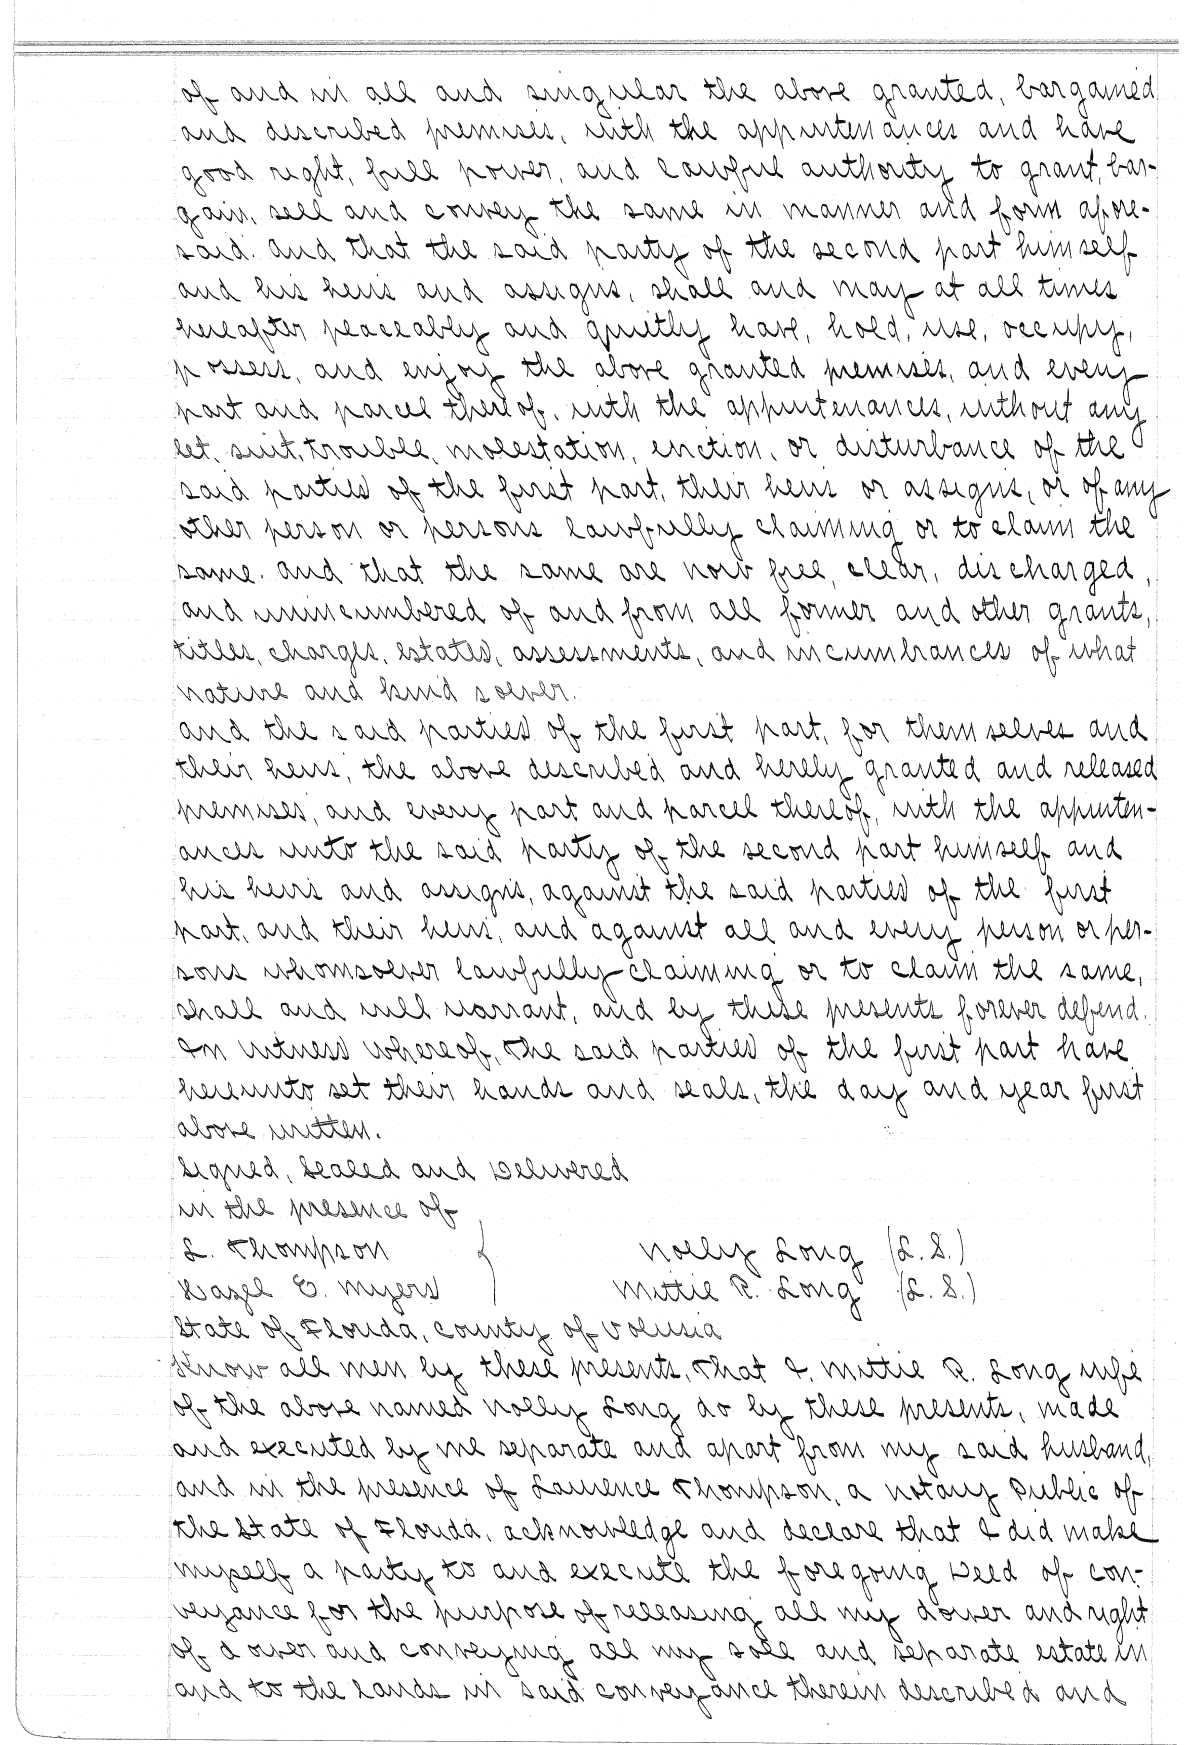 of and in all and singular the above granted, bargained
and described premises, with the appurtenances and have
good right, full power, and lawful authority to grant, bar-
gain, sell and convey the same in manner and form afore-
said. And that the said party of the second part himself
and his heirs and assigns, shall and may at all times
hereafter peaceably and quietly have, hold, use, occupy,
possess, and enjoy the above granted premises, and every
part and parcel thereof, with the appurtenances, without any
let, suit, trouble, molestation, eviction, or disturbance of the
said parties of the first part, their heirs or assigns, or of any
other person or persons lawfully claiming or to claim the
same. and that the same are now free, clear, discharged,
and unincumbered of and from all former and other grants,
titles, charges, estates, assessments, and incumbrances of what
nature and kind soever.
And the said parties of the first part, for themselves and
their heirs, the above described and hereby granted and released
premises, and every part and parcel thereof, with the appurten-
ances unto the said party of the second part himself and
his heirs and assigns, against the said parties of the first
part, and their heirs, and against all and every person or per-
sons whomsoever lawfully claiming or to claim the same,
shall and will warrant, and by these presents forever defend.
In witness whereof, the said parties of the first part have
hereunto set their hands and seals, the day and year first
above written.
Signed, Sealed and Delivered
in the presence of
L. Thompson } Nolly Long (L. S.)
Hazel E. Myers Mittie R. Long (L. S.)
State of Florida, County of Volusia
Know all men by these presents, that I, Mittie R. Long wife
of the above named Nolly Long do by these presents, made
and executed by me separate and apart from my said husband,
and in the presence of Laurence Thompson, a notary Public of
the State of Florida, acknowledge and declare that I did make
myself a party to and execute the foregoing Deed of con-
veyance for the purpose of releasing all my dower and right
of dower and conveying all my sole and separate estate in
and to the lands in said conveyance therein described and